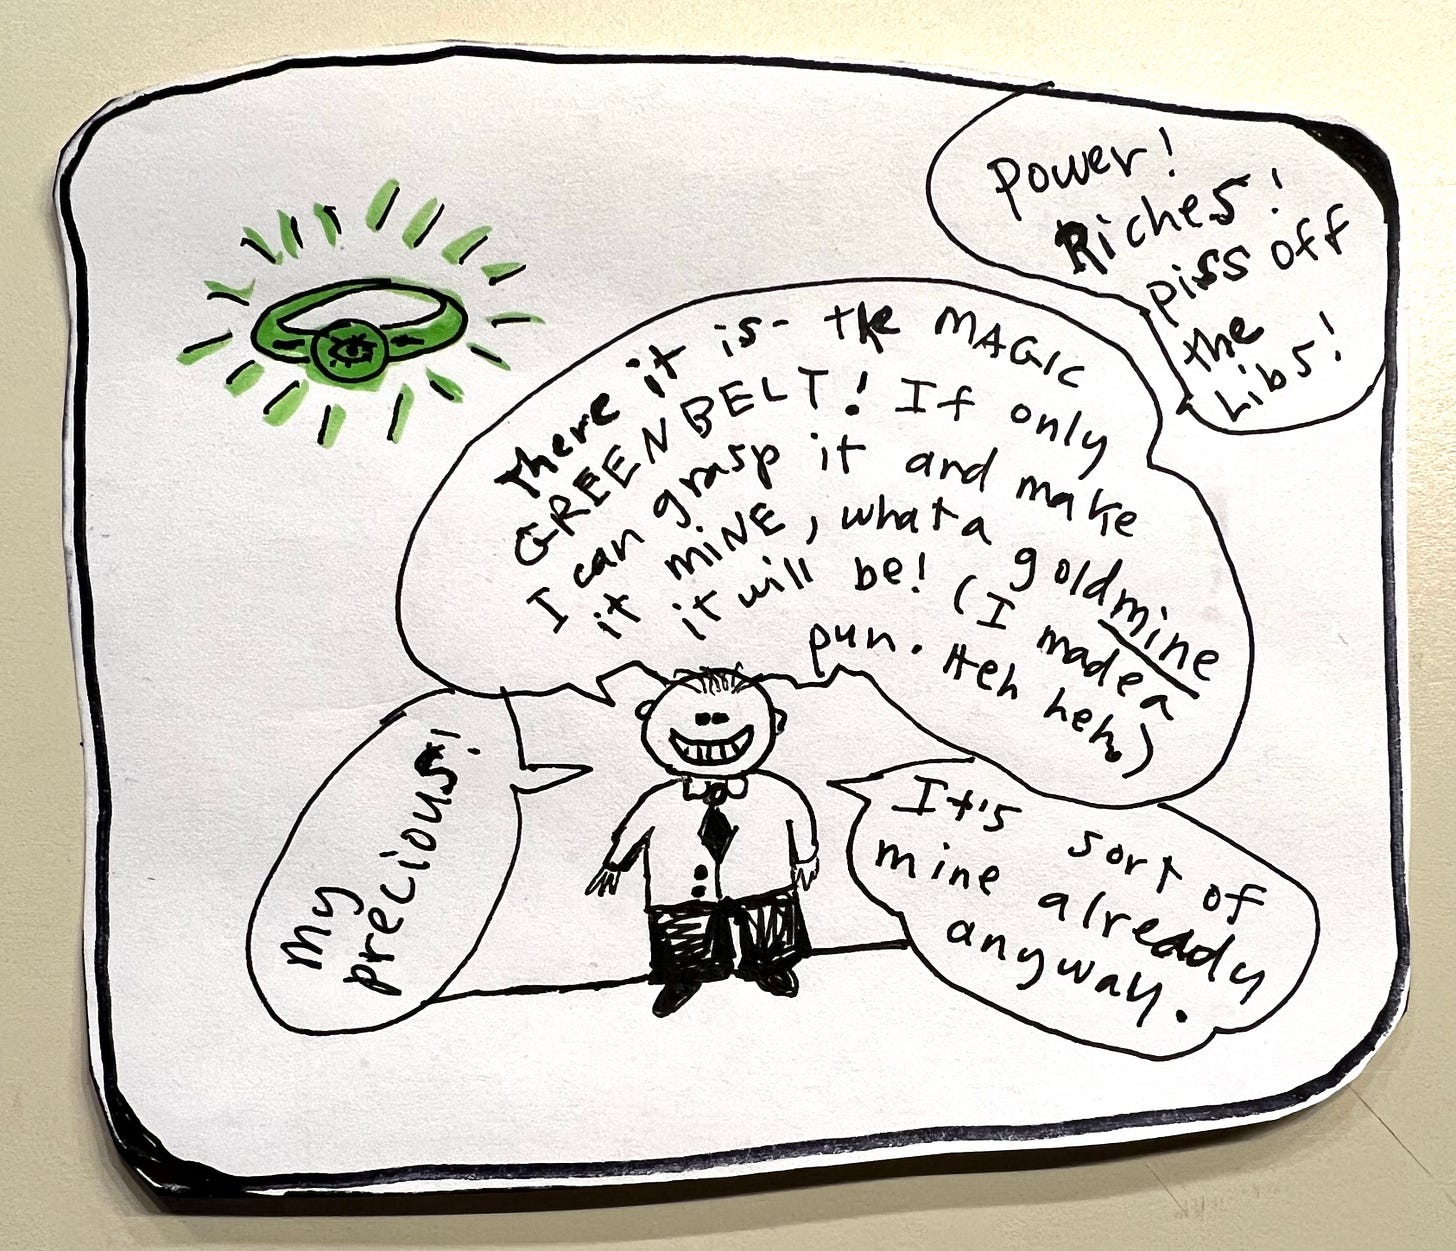 Power!
Riches!
piss off
the
Libs!
There it is- the MAGIC
GREENBELT! If only
I can grasp it and make
it MiNE, what a goldmine
it will be! (I made a
pun. Heh heh.)
My
precious!
It's sort of
mine already
anyway.